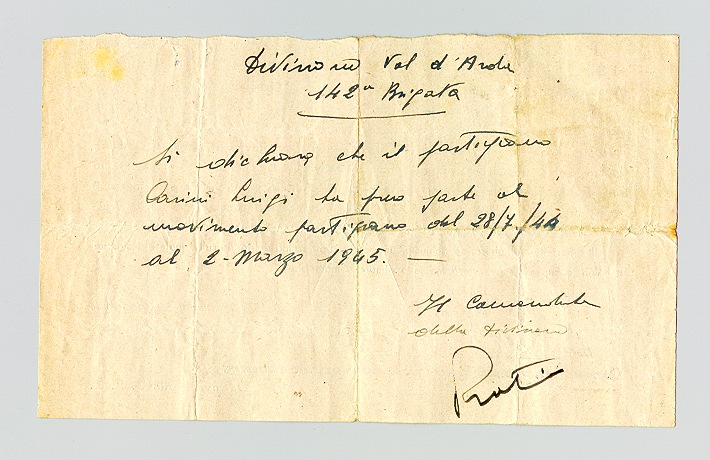 Divisione Val d'Arda
142ª Brigata
Si dichiara che il partigiano
Carini Luigi ha preso parte al
movimento partigiano dal 28/7/44
al 2-Marzo 1945. —
Il Comandante
della Divisione
Prati